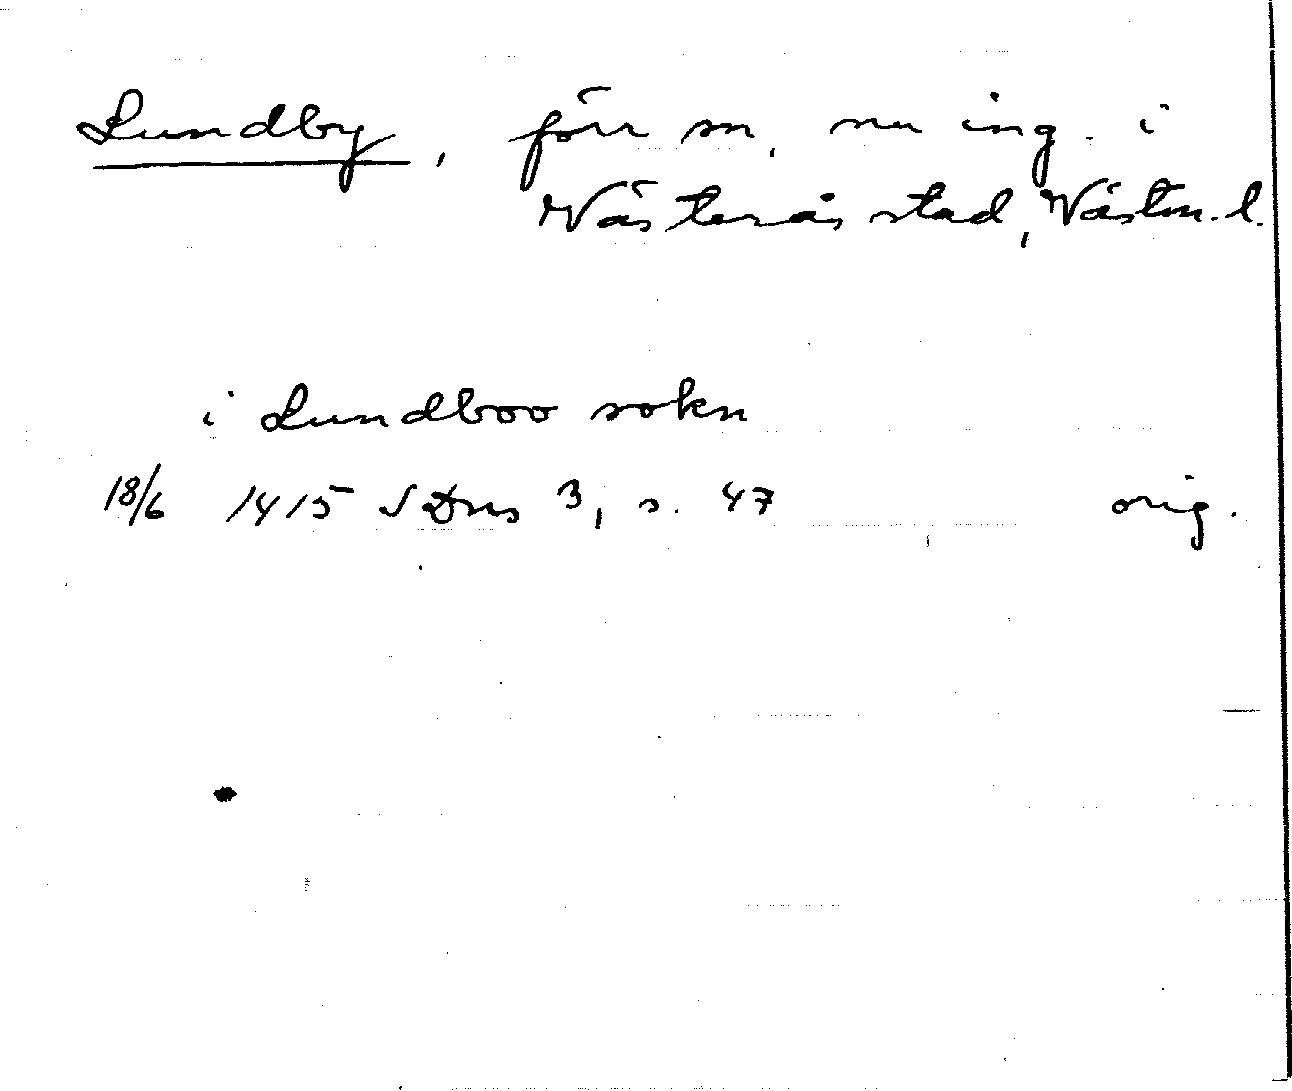 Lundby, förr sn, nu ing. i
Västerås stad, Västm. l.
i Lundboo sokn
18/6 1415 SDns 3, s. 47 orig.